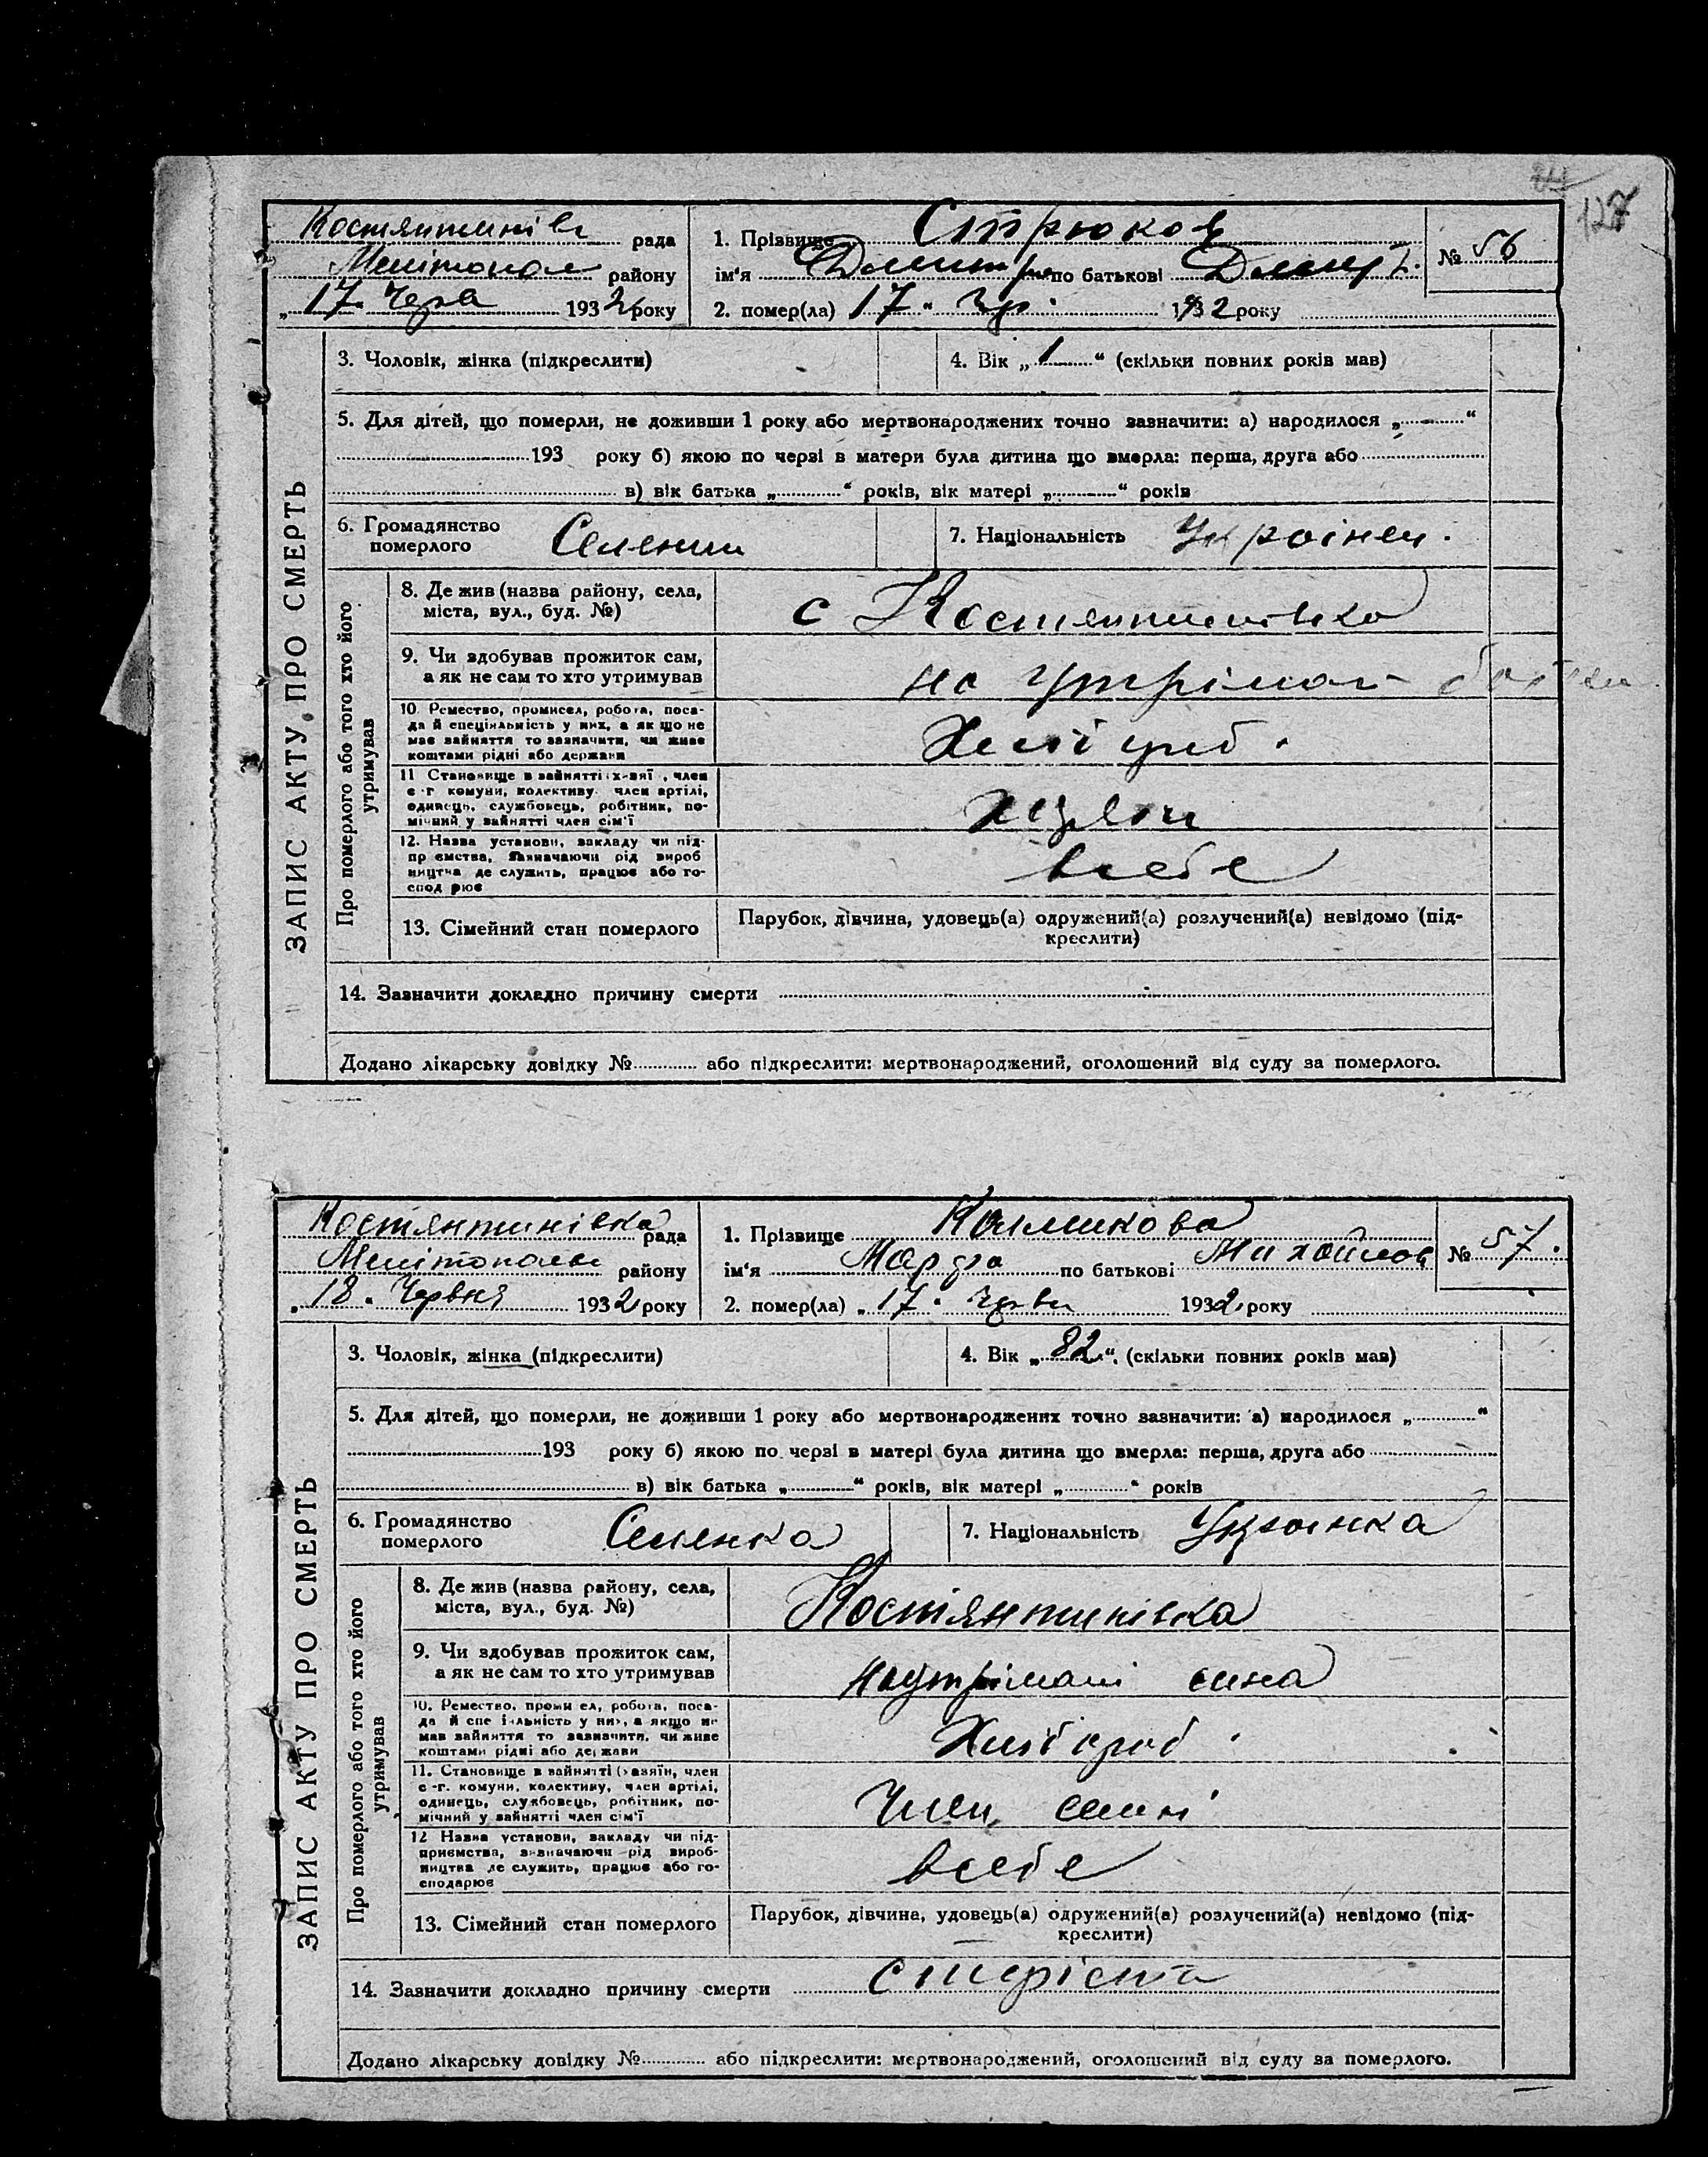 127
Костянтинів рада
Мелітопол району
„ 17 " Черв 1932 року
1. Прізвище Стрюков
ім'я Дмитро по батькові Дмит
№ 56
2. помер(ла) 17 " Чр 1932 року
ЗАПИС АКТУ ПРО СМЕРТЬ
3. Чоловік, жінка (підкреслити)
4. Вік „ 1 “ (скільки повних років мав)
5. Для дітей, що померли, не доживши 1 року або мертвонароджених точно зазначити: а) народилося „ “
193 року б) якою по черзі в матери була дитина що вмерла: перша, друга або
в) вік батька „ “ років, вік матері „ “ років
6. Громадянство
померлого Селенин
7. Національність Україінец.
Про померлого або того хто його
утримував
8. Де жив (назва району, села,
міста, вул., буд. №) с Костянтинівка
9. Чи здобував прожиток сам,
а як не сам то хто утримував на утріман
10. Ремество, промисел, робота, поса-
да й спеціяльність у них, а як що не
має зайняття то зазначити, чи живе
коштами рідні або держави Хлібороб.
11 Становище в зайнятті (х-зяї , член
с -г комуни, колективу. член артілі,
одинець, службовець, робітник, по-
мічний у зайнятті член сім'ї
12. Назва установи, закладу чи під-
пр ємства, зазначаючи рід вироб
ництва де служить, працює або го-
спод рює всебе
13. Сімейний стан померлого
Парубок, дівчина, удовець(а) одружений(а) розлучений(а) невідомо (під-
креслити)
14. Зазначити докладно причину смерти
Додано лікарську довідку № або підкреслити: мертвонароджений, оголошений від суду за померлого.
Костянтинівка рада
Мелітополь району
„ 18 " Червня 1932 року
1. Прізвище Калмикова
ім'я Марфа по батькові Михайлов
№ 57.
2. помер(ла) „ 17 " Чрвн 1932 року
ЗАПИС АКТУ ПРО СМЕРТЬ
3. Чоловік, жінка (підкреслити)
4. Вік „ 82 “ (скільки повних років мав)
5. Для дітей, що померли, не доживши 1 року або мертвонароджених точно зазначити: а) народилося „ “
193 року б) якою по черзі в матері була дитина що вмерла: перша, друга або
в) вік батька „ “ років, вік матері „ “ років
6. Громадянство
померлого Селенка
7. Національність Українка
Про померлого або того хто його
утримував
8. Де жив (назва району, села,
міста, вул., буд. №) Костянтинівка
9. Чи здобував прожиток сам,
а як не сам то хто утримував наутрімані сина
10. Ремество, проми ел, робота, поса-
да й спе і яльність у них, а якщо не
мав зайняття то зазначити, чи живе
коштами рідні або держави Хлібороб
11. Становище в зайнятті (хазяїн, член
с -г. комуни, колективу, член артілі,
одинець, службовець, робітник, по-
мічний у зайнятті член сім'ї Член семні
12 Назва установи, закладу чи під-
приємства, зазначаючи рід вироб-
ництва де служить, працює або го-
сподарює всебе
13. Сімейний стан померлого
Парубок, дівчина, удовець(а) одружений(а) розлучений(а) невідомо (під-
креслити)
14. Зазначити докладно причину смерти старіста
Додано лікарську довідку № або підкреслити: мертвонароджений, оголошений від суду за померлого.